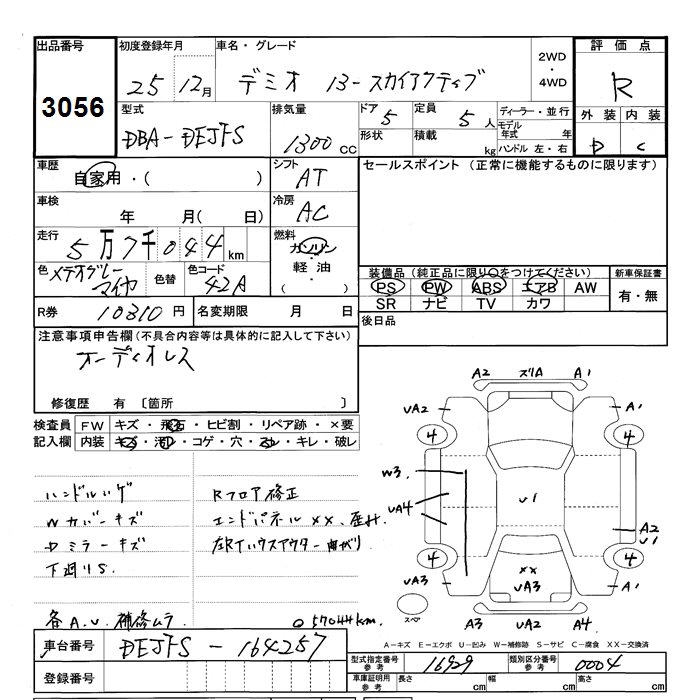 出品番号 初度登録年月 車名・グレード 2WD ・ 4WD 評価点
3056 25 12月 デミオ 13-スカイアクティブ R
型式 排気量 ドア 定員 ディーラー・並行 外装 内装
DBA-DEJFS 1300cc 5 5人 モデル年式 年 D C
形状 積載 kg ハンドル 左・右
車歴 自家用・( ) シフト AT セールスポイント (正常に機能するものに限ります)
車検 年 月( 日) 冷房 AC
走行 5万7千044km 燃料 ガソリン・軽油・( )
色 メテオグレーマイカ 色替 色コード 42A 装備品(純正品に限り○をつけてください) 新車保証書
PS PW ABS エアB AW 有・無
R券 10310円 名変期限 月 日 SR ナビ TV カワ
注意事項申告欄(不具合内容等は具体的に記入して下さい) 後日品
オーディオレス
修復歴 有 〔箇所 〕
検査員 FW キズ・飛石・ヒビ割・リペア跡・×要
記入欄 内装 キズ・汚れ・コゲ・穴・スレ・キレ・破レ
A2 スリA A1
UA2 A1
4 4
W3 U1
UA4 A2 U1
4 4
UA3 ×× UA3 A1
スペア A3 UA2 A4
ハンドルハゲ Rフロア修正
Wカバーキズ エンドパネル××、歪み.
Dミラーキズ 左Rインハウスアウター曲がり
下廻りS.
各A.U.補修ムラ 057044km.
A-キズ E-エクボ U-凹み W-補修跡 S-サビ C-腐食 XX-交換済
車台番号 DEJFS - 164257
型式指定番号 参考 16929 類別区分番号 参考 0004
登録番号 車庫証明用 参考 長さ cm 幅 cm 高さ cm